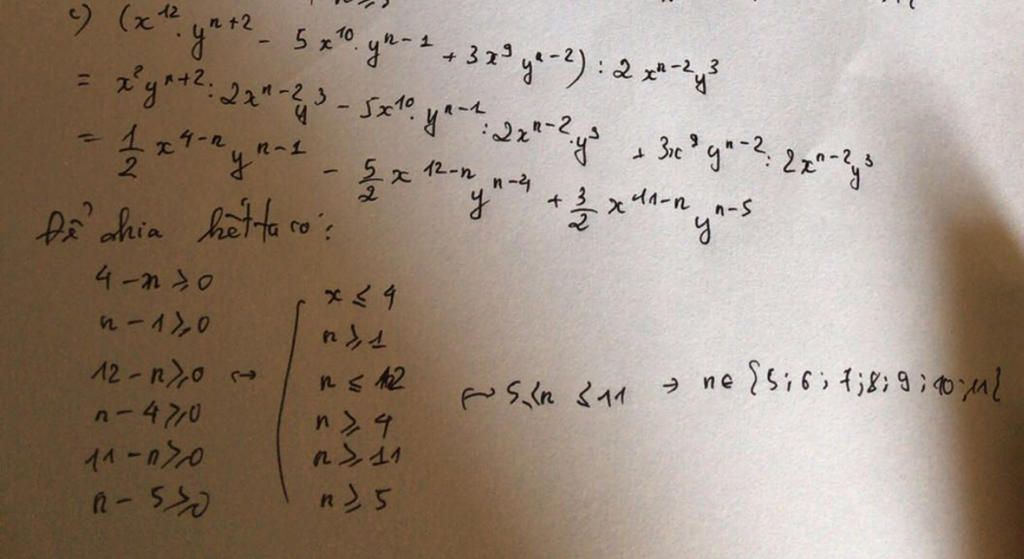 c) (x^12 . y^n+2 - 5 x^10 . y^n-1 + 3x^9 y^n-2) : 2 x^n-2 y^3
= x^2 y^n+2 : 2x^n-2 y^3 - 5x^10 . y^n-1 : 2x^n-2 . y^3 + 3x^9 y^n-2 : 2x^n-2 y^3
= 1/2 x^4-n y^n-1 - 5/2 x^12-n y^n-4 + 3/2 x^11-n y^n-5
Để chia hết ta có :
4-n ≥ 0
n-1 ≥ 0
12-n ≥ 0 ↔
n-4 ≥ 0
11-n ≥ 0
n-5 ≥ 0
x ≤ 4
n ≥ 1
n ≤ 12
n ≥ 4
n ≥ 11
n ≥ 5
5 ≤ n ≤ 11 → n ∈ {5; 6; 7; 8; 9; 10; 11}